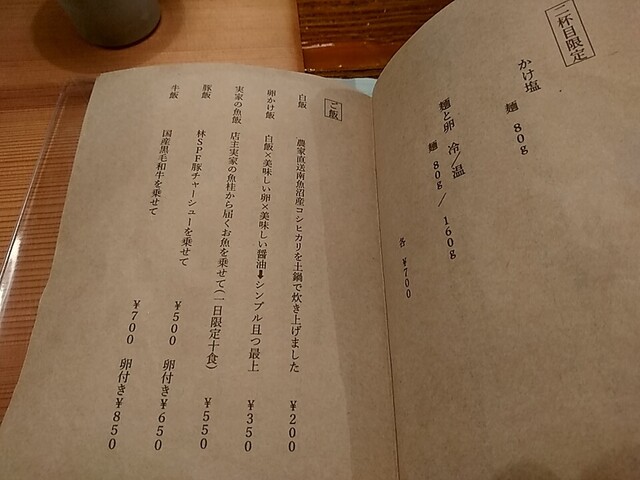 二杯目限定
かけ塩 麺 80g
麺と卵 冷/温
麺 80g / 160g
各 ¥700
ご飯
白飯 農家直送南魚沼産コシヒカリを土鍋で炊き上げました ¥200
卵かけ飯 白飯×美味しい卵×美味しい醤油➡シンプル且つ最上 ¥350
実家の魚飯 店主実家の魚桂から届くお魚を乗せて(一日限定十食) ¥550
豚飯 林SPF豚チャーシューを乗せて ¥500 卵付き¥650
牛飯 国産黒毛和牛を乗せて ¥700 卵付き¥850